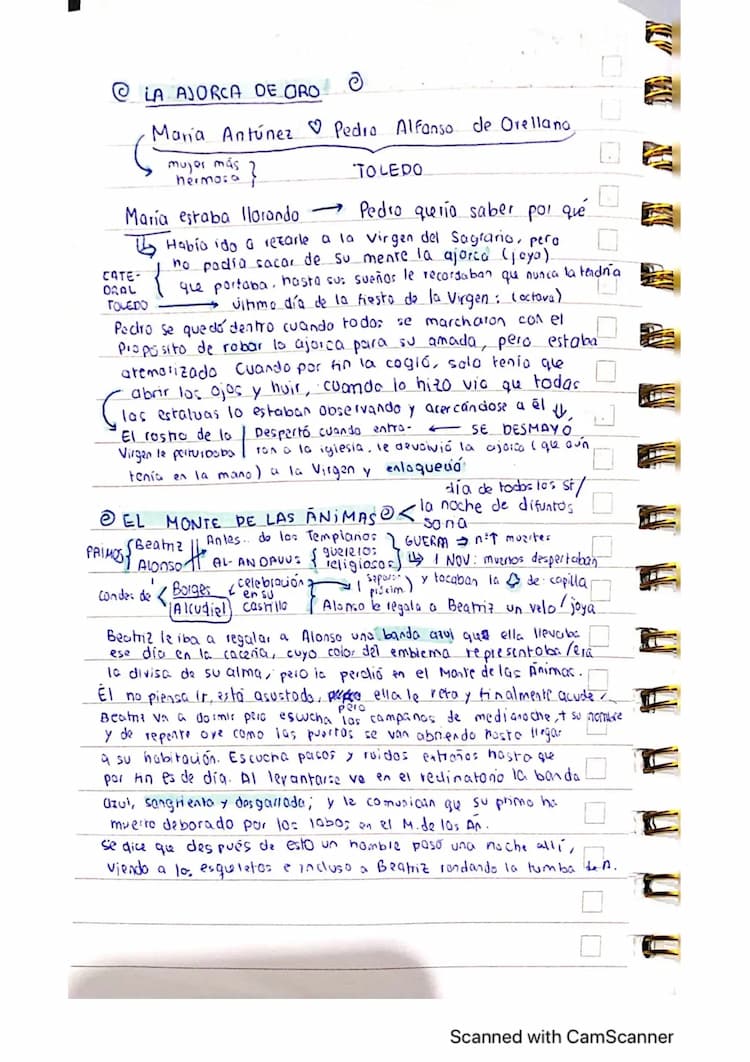 LA AJORCA DE ORO
María Antúnez ♡ Pedro Alfonso de Orellana
mujer más hermosa }
TOLEDO
María estaba llorando → Pedro quería saber por qué
↳ Había ido a rezarle a la Virgen del Sagrario, pero
no podía sacar de su mente la ajorca (joya)
CATEDRAL TOLEDO { que portaba, hasta sus sueños le recordaban que nunca la tendría
→ último día de la fiesta de la Virgen: (octava)
Pedro se quedó dentro cuando todos se marcharon con el
propósito de robar la ajorca para su amada, pero estaba
atemorizado. Cuando por fin la cogió, solo tenía que
abrir los ojos y huir, cuando lo hizo vio que todas
las estatuas lo estaban observando y acercándose a él ⇓
El rostro de la Virgen le perturbaba | Despertó cuando entra- ← SE DESMAYÓ
ron a la iglesia, le devolvió la ajorca (que aún
tenía en la mano) a la Virgen y enloqueció
EL MONTE DE LAS ÁNIMAS < día de todos los st/
la noche de difuntos
soria
PRIMOS { Beatriz
Alonso
Antes.. de los Templarios
AL-ANDALUS { guerreros religiosos } GUERRA ⇒ nº↑ muertes
↳ 1 NOV: muertos despertaban
y tocaban la de capilla
condes de < Borges
Alcudiel
celebración en su castillo
Alonso le regala a Beatriz un velo/joya
Beatriz le iba a regalar a Alonso una banda azul que ella llevaba
ese día en la cacería, cuyo color del emblema representaba/era
la divisa de su alma, pero la perdió en el Monte de las Ánimas.
Él no piensa ir, está asustado, pero ella le reta y finalmente acude.
Beatriz va a dormir pero escucha las campanas de medianoche, + su nombre
y de repente oye como las puertas se van abriendo hasta llegar
a su habitación. Escucha pasos y ruidos extraños hasta que
por fin es de día. Al levantarse ve en el reclinatorio la banda
azul, sangrienta y desgarrada; y le comunican que su primo ha
muerto deborado por los lobos en el M. de las Án.
Se dice que después de esto un hombre pasó una noche allí,
viendo a los esqueletos e incluso a Beatriz rondando la tumba de A.
Scanned with CamScanner